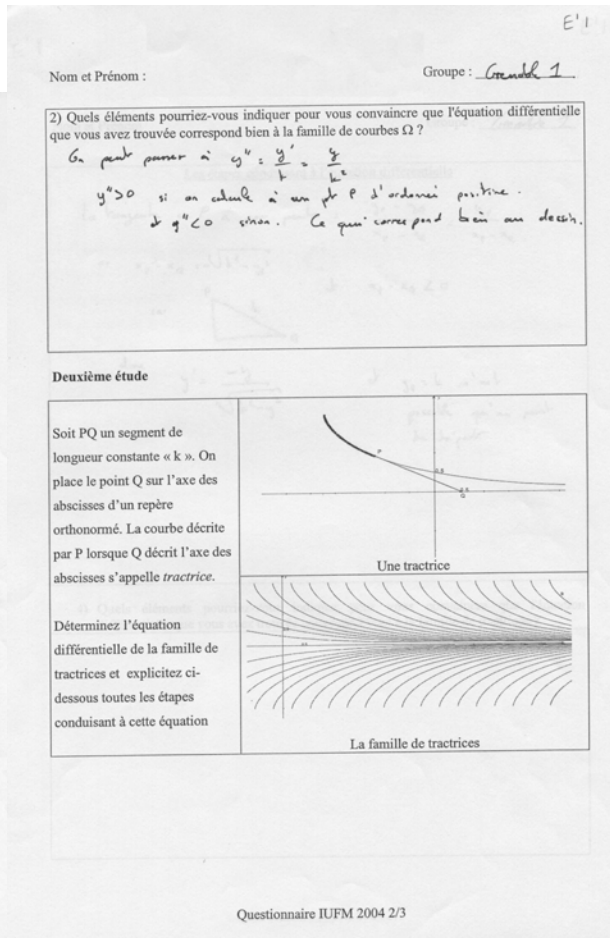 E'1
Nom et Prénom :
Groupe : Grenoble 1
2) Quels éléments pourriez-vous indiquer pour vous convaincre que l'équation différentielle
que vous avez trouvée correspond bien à la famille de courbes Ω ?
On peut passer à y'' = y'/k = y/k²
y''>0 si on calcule à un pt P d'ordonnée positive.
et y''<0 sinon. Ce qui correspond bien au dessin.
Deuxième étude
Soit PQ un segment de
longueur constante « k ». On
place le point Q sur l'axe des
abscisses d'un repère
orthonormé. La courbe décrite
par P lorsque Q décrit l'axe des
abscisses s'appelle tractrice.
Déterminez l'équation
différentielle de la famille de
tractrices et explicitez ci-
dessous toutes les étapes
conduisant à cette équation
P
Q
Une tractrice
La famille de tractrices
Questionnaire IUFM 2004 2/3